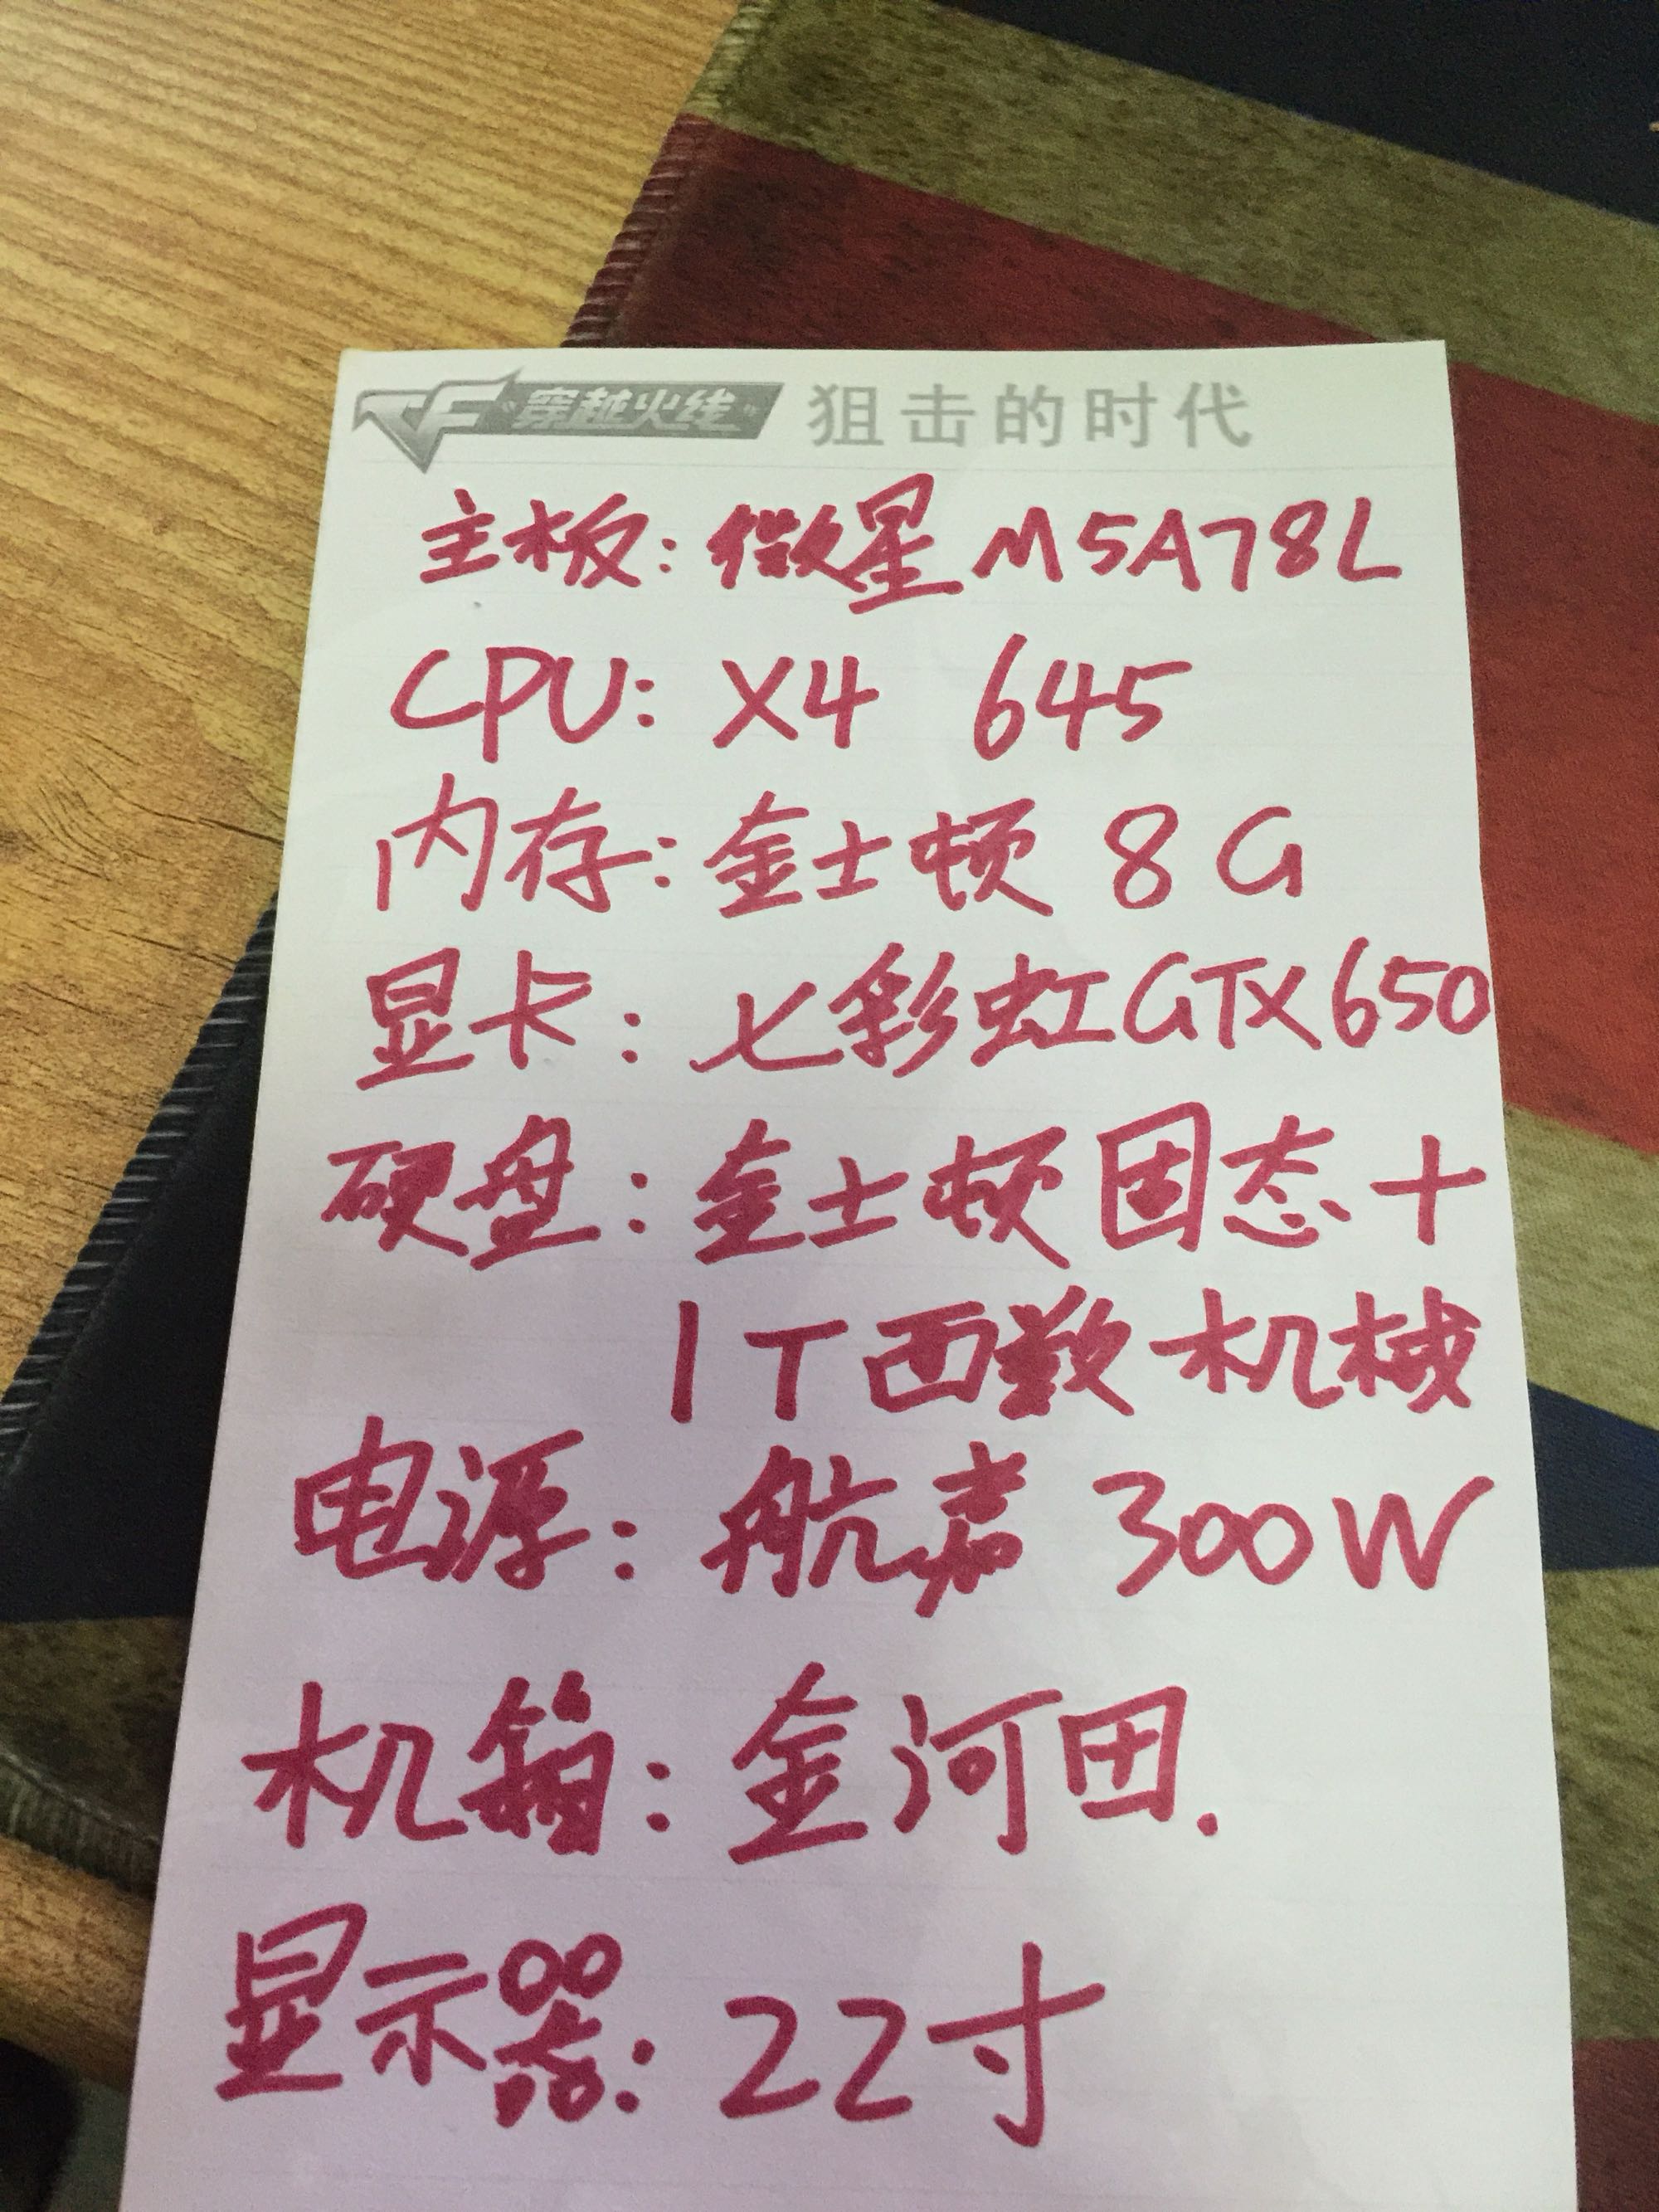 CF "穿越火线" 狙击的时代
主板：微星M5A78L
CPU：X4 645
内存：金士顿 8G
显卡：七彩虹GTX650
硬盘：金士顿固态+
1T西数机械
电源：航嘉 300W
机箱：金河田.
显示器：22寸